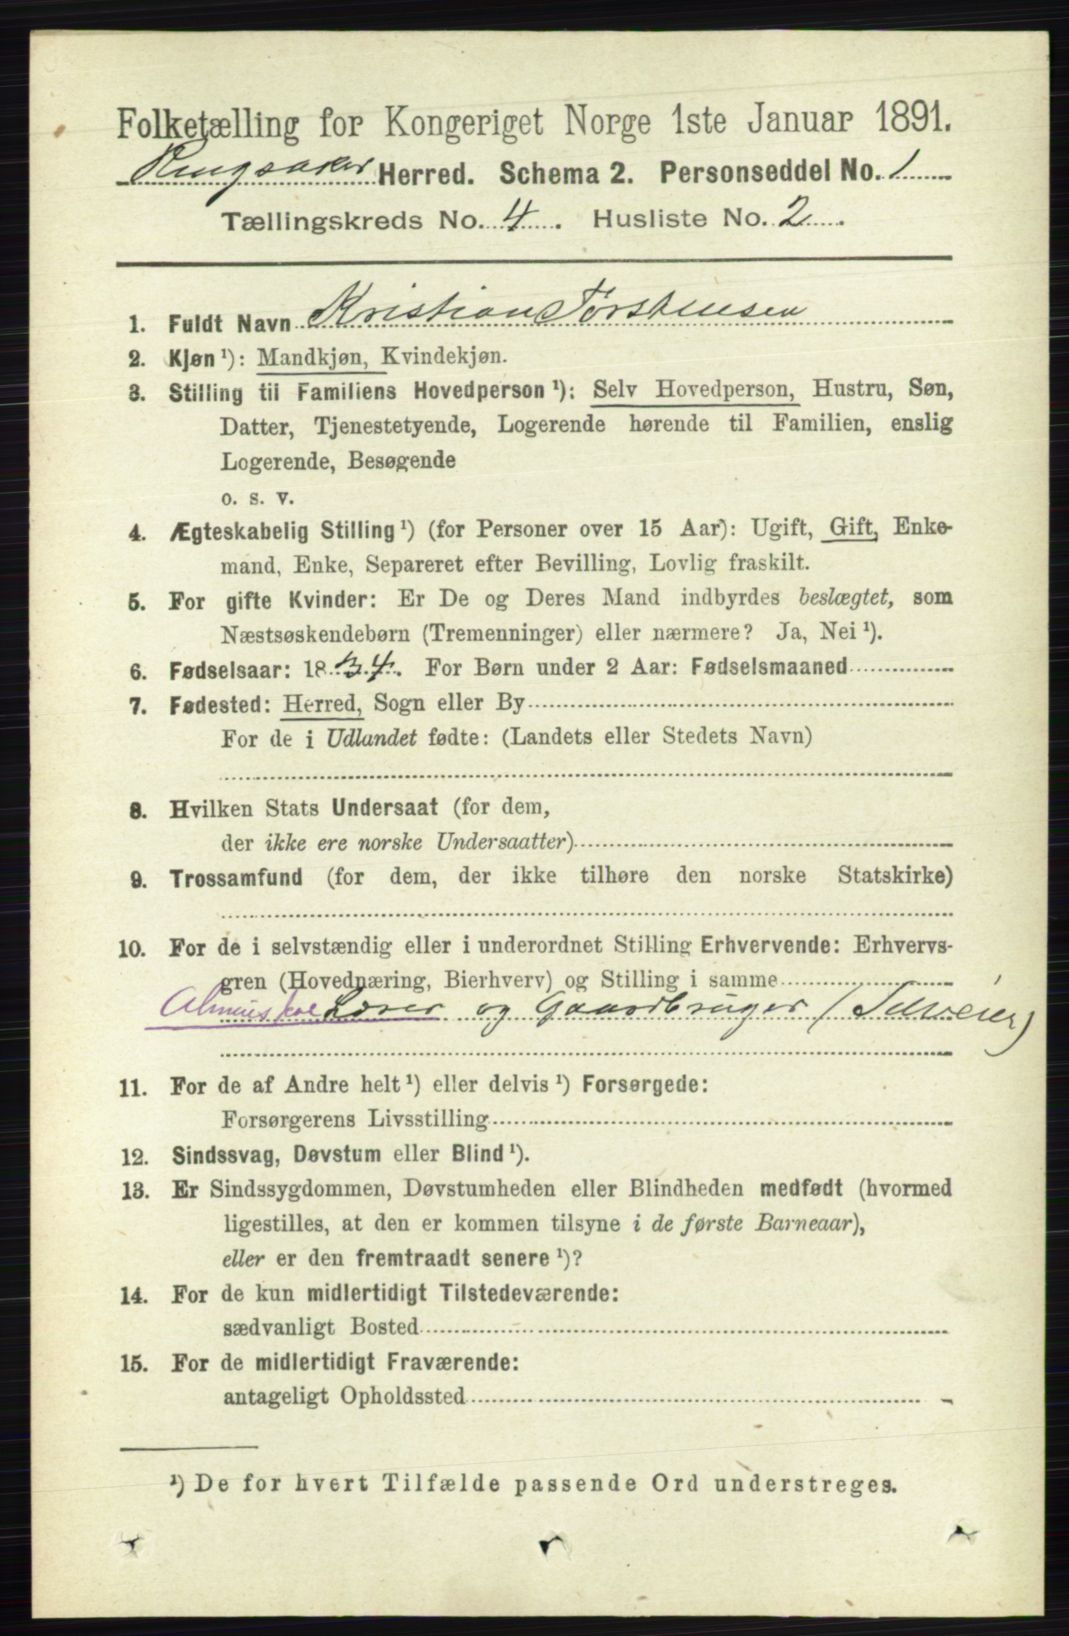 Folketælling for Kongeriget Norge 1ste Januar 1891.
Ringsaker Herred. Schema 2. Personseddel No. 1
Tællingskreds No. 4. Husliste No. 2.
1. Fuldt Navn Kristian Torstensen
2. Kjøn ¹): Mandkjøn, Kvindekjøn.
3. Stilling til Familiens Hovedperson ¹): Selv Hovedperson, Hustru, Søn,
Datter, Tjenestetyende, Logerende hørende til Familien, enslig
Logerende, Besøgende
o. s. v.
4. Ægteskabelig Stilling ¹) (for Personer over 15 Aar): Ugift, Gift, Enke-
mand, Enke, Separeret efter Bevilling, Lovlig fraskilt.
5. For gifte Kvinder: Er De og Deres Mand indbyrdes beslægtet, som
Næstsøskendebørn (Tremenninger) eller nærmere? Ja, Nei ¹).
6. Fødselsaar: 1834. For Børn under 2 Aar: Fødselsmaaned
7. Fødested: Herred, Sogn eller By
For de i Udlandet fødte: (Landets eller Stedets Navn)
8. Hvilken Stats Undersaat (for dem,
der ikke ere norske Undersaatter)
9. Trossamfund (for dem, der ikke tilhøre den norske Statskirke)
10. For de i selvstændig eller i underordnet Stilling Erhvervende: Erhvervs-
gren (Hovednæring, Bierhverv) og Stilling i samme
Almueskol Lærer og Gaardbruger (Selveier)
11. For de af Andre helt ¹) eller delvis ¹) Forsørgede:
Forsørgerens Livsstilling
12. Sindssvag, Døvstum eller Blind ¹).
13. Er Sindssygdommen, Døvstumheden eller Blindheden medfødt (hvormed
ligestilles, at den er kommen tilsyne i de første Barneaar),
eller er den fremtraadt senere ¹)?
14. For de kun midlertidigt Tilstedeværende:
sædvanligt Bosted
15. For de midlertidigt Fraværende:
antageligt Opholdssted
¹) De for hvert Tilfælde passende Ord understreges.